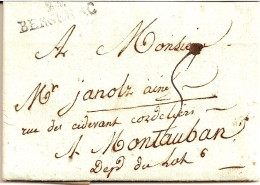 BERGERAC
A Monsieur
Mr janolz ainé
rue des cidevant cordeliers
A Montauban
Depd du Lot 6